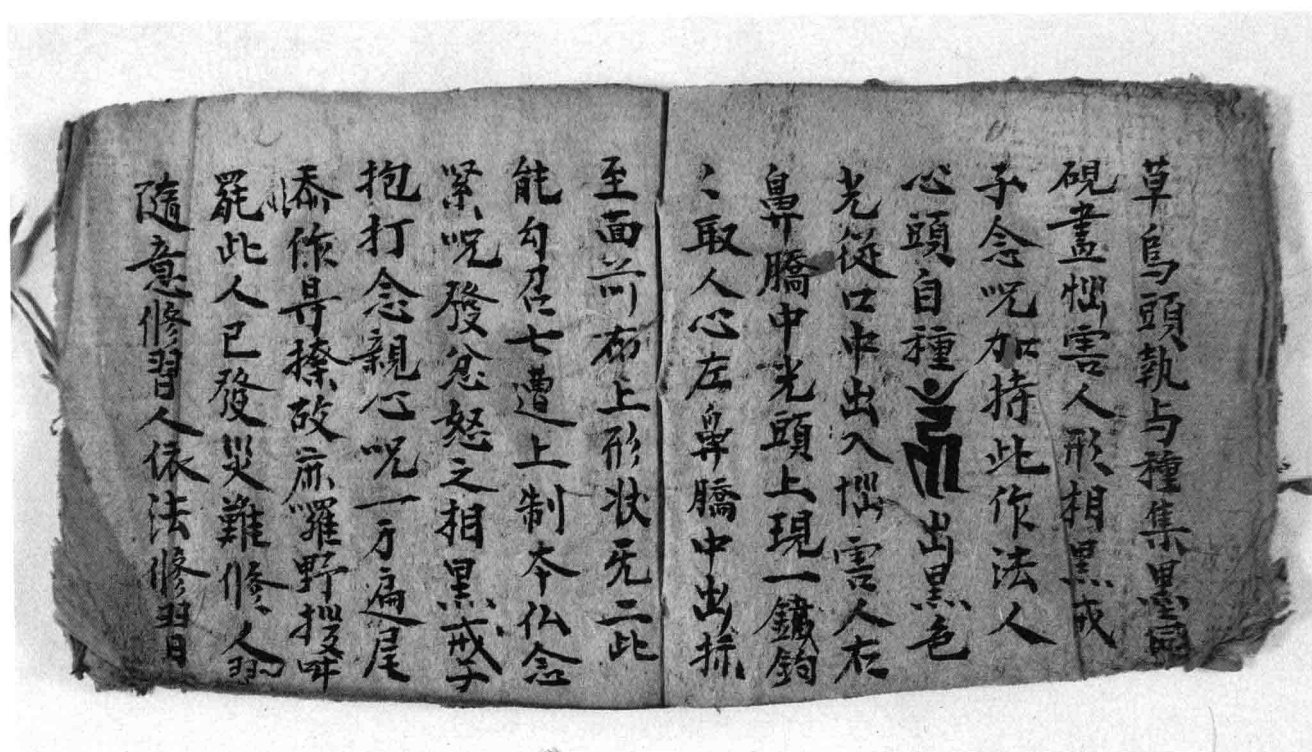 草烏頭執与種集黑
硯畫惱害人形相黑戒
子念呪加持此作法人
心頭自種出黑色
光從口中出入惱害人右
鼻膈中光頭上現一鐵鈎
〻取人心左鼻膈中出掠
至面前布上形状无二此
能勾召七遭上制夲仏念
緊呪發忿怒之相黑戒子
抱打念親心呪一万遍尾
添作㝵搸敢麻囉野吽
罷此人已發災難修人
隨意修習人依法修習